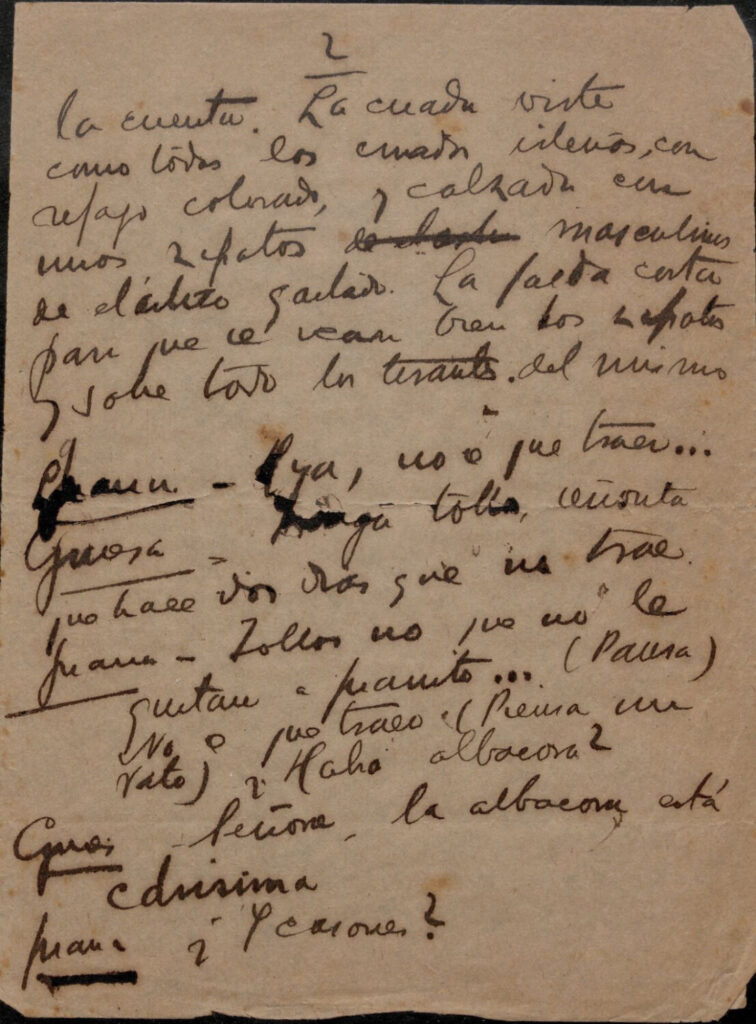 2
la cuenta. La criada viste
como todas las criadas isleñas, con
refajo colorado, y calzada con
unos zapatos masculinos
de elástico gastado. La falda corta
para que se vean bien los zapatos
y sobre todo los tirantes del mismo
Juana - no sé que traer...
Ginesa - Traiga tollos, señorita
que hace dos días que no trae.
Juana - Tollos no que no le
gustan a Juanito... (Pausa)
No sé que traer. (Piensa un
rato) ¿Habrá albacora?
Gines - Señora, la albacora está
carísima
Juana ¿Y casones?